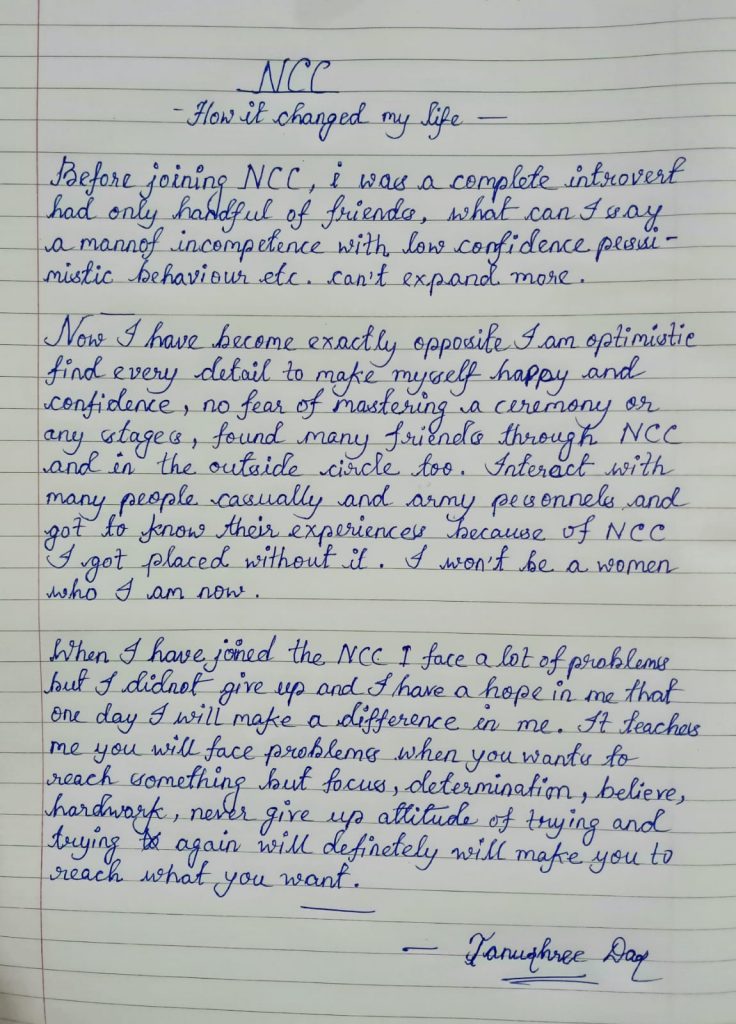 NCC
- How it changed my life -
Before joining NCC, i was a complete introvert
had only handful of friends, what can I say
a mannof incompetence with low confidence pessi-
mistic behaviour etc. can't expand more.
Now I have become exactly opposite I am optimistic
find every detail to make myself happy and
confidence, no fear of mastering a ceremony or
any stages, found many friends through NCC
and in the outside circle too. Interact with
many people casually and army pesonnels and
got to know their experiences because of NCC
I got placed without it. I won't be a women
who I am now.
When I have joined the NCC I face a lot of problems
but I didnot give up and I have a hope in me that
one day I will make a difference in me. It teaches
me you will face problems when you wants to
reach something but focus, determination, believe,
hardwork, never give up attitude of trying and
trying again will definetely will make you to
reach what you want.
- Tanushree Das